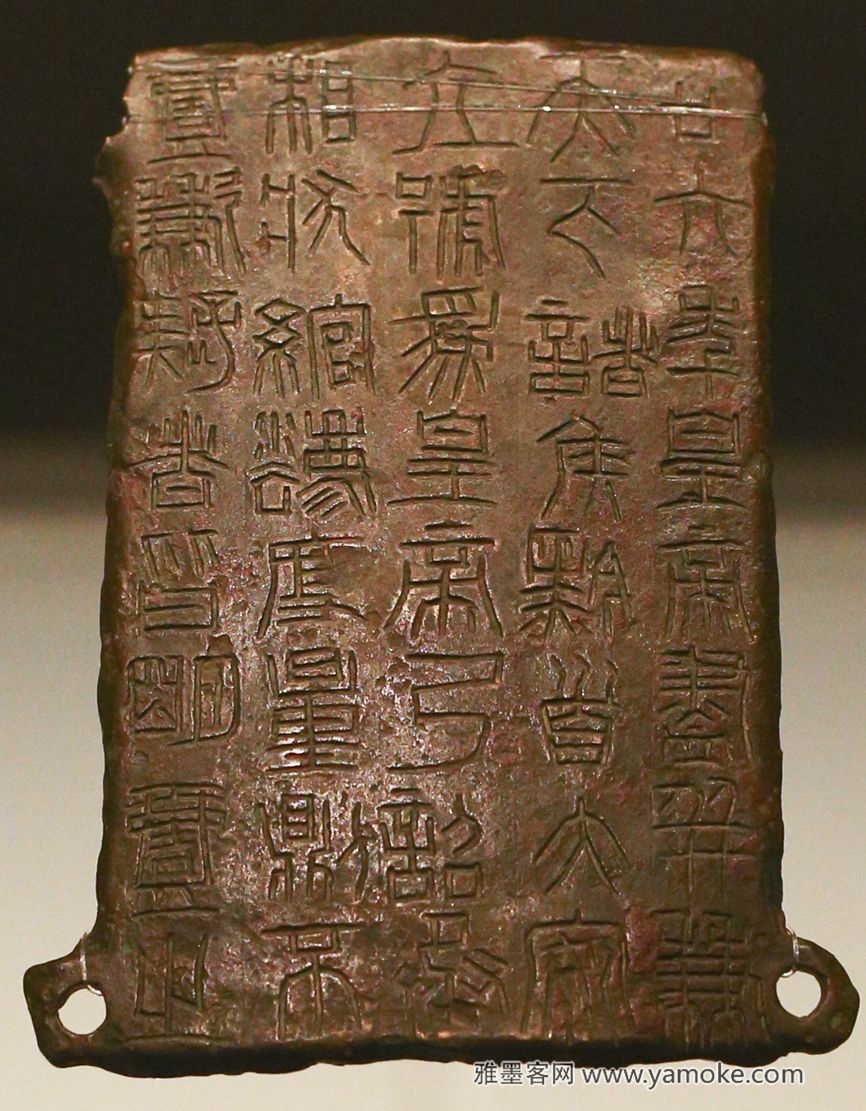 廿六年皇帝盡并兼
天下諸侯黔首大安
立號爲皇帝乃詔丞
相狀綰灋度量則不
壹歉疑者皆明壹之
雅墨客网 www.yamoke.com